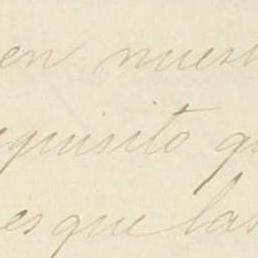 en nues
equisito q
es que las